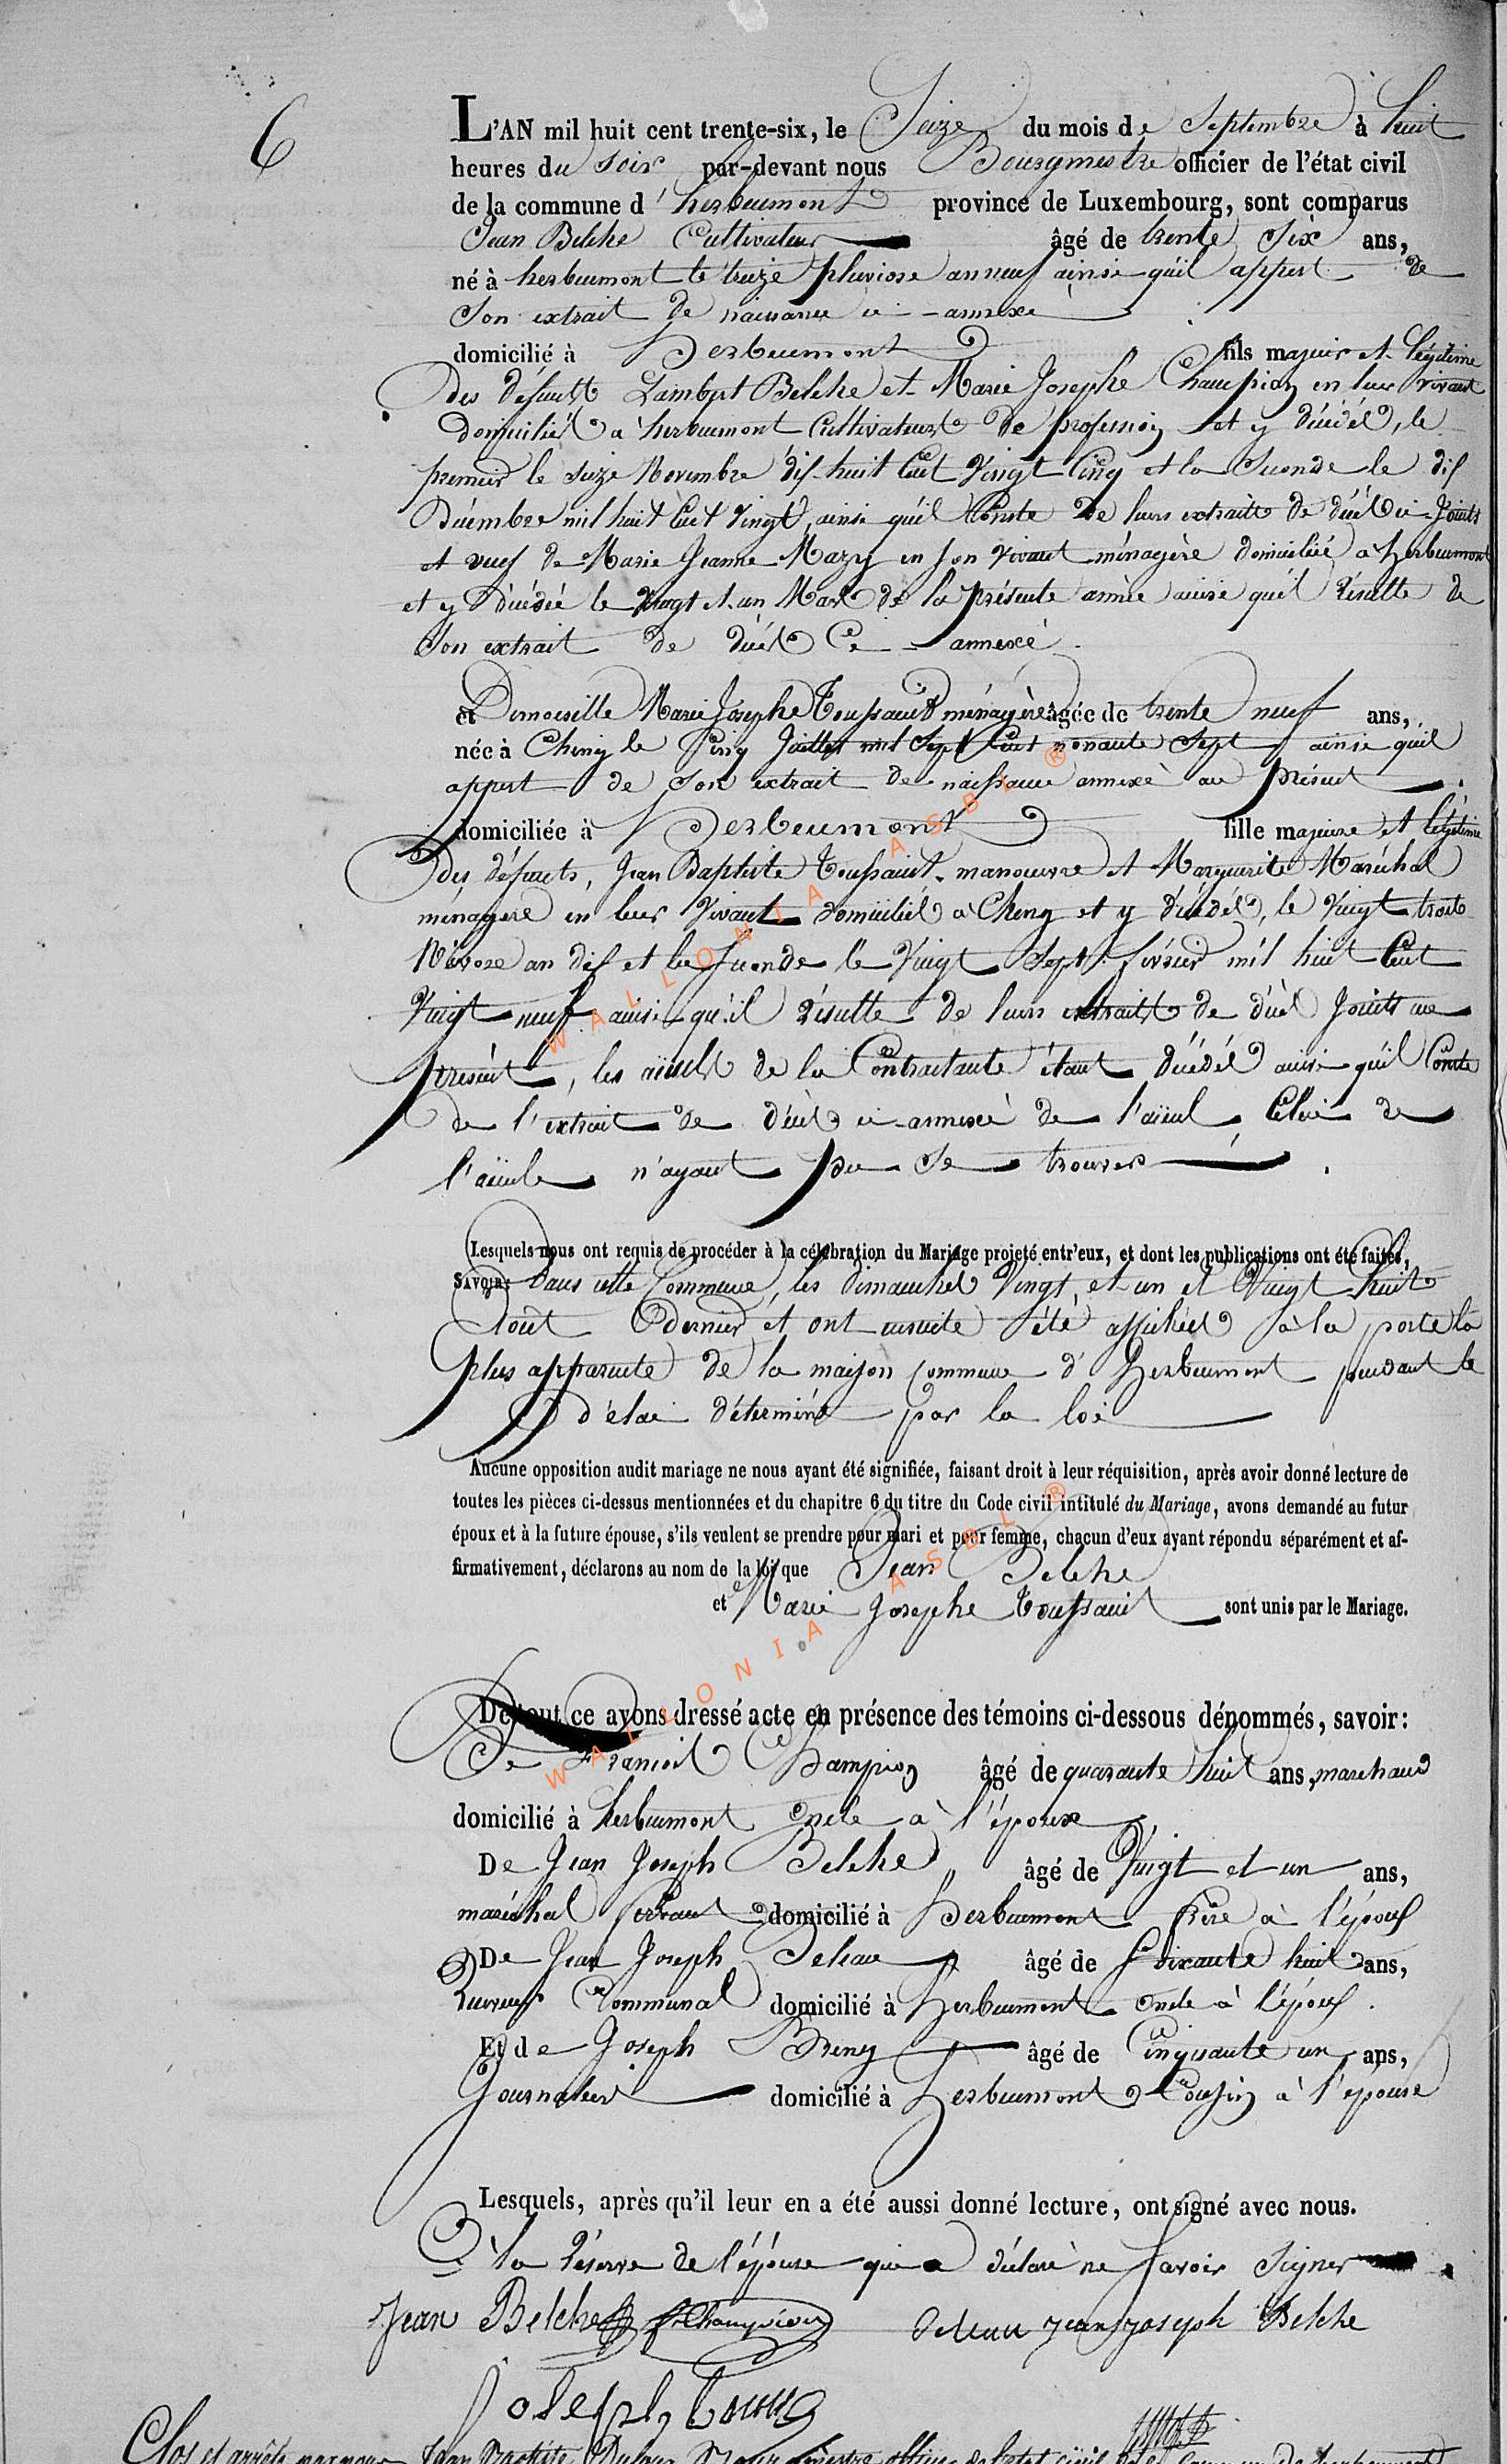 6
L'AN mil huit cent trente-six, le Seize du mois de Septembre à huit
heures du soir par-devant nous Bourgmestre officier de l'état civil
de la commune d'herbeumont province de Luxembourg, sont comparus
Jean Belche Cultivateur âgé de trente Six ans,
né à herbeumont le treize pluviose an neuf ainsi qu'il appert de
Son extrait de naissance ci-annexé
domicilié à Herbeumont fils majeur et légitime
des défunts Lambert Belche et Marie Josephe Champion en leur vivant
domiciliés à herbeumont Cultivateurs de profession et y décédés, le
premier le seize Novembre dix-huit Cent Vingt Cinq et la Seconde le dix
Décembre mil huit Cent Vingt, ainsi qu'il Conste de leurs extraits de décès ci-Joints
et veuf de Marie Jeanne Mazy en son vivant ménagère domiciliée à herbeumont
et y décédée le Vingt et un Mars de la présente année ainsi qu'il Résulte de
Son extrait de décès Ci-annexé
et Demoiselle Marie Josephe Toussaint ménagère âgée de trente neuf ans,
née à Chiny le Cinq Juillet mil Sept Cent nonante Sept ainsi qu'il
appert de Son extrait de naissance annexé au présent
domiciliée à Herbeumont fille majeure et légitime
des défunts, Jean Baptiste Toussaint manoeuvre et Marguerite Maréchal
ménagère en leur Vivant domiciliés à Chiny et y décédés, le Vingt trois
Nivose an dix et la Seconde le Vingt Sept février mil huit Cent
Vingt neuf ainsi qu'il Résulte de leurs extraits de décès Joints au
présent, les aïeuls de la Contractante étant décédés ainsi qu'il Conste
de l'extrait de décès ci-annexé de l'aïeul Celui de
l'aïeule n'ayant pu Se trouver.
Lesquels nous ont requis de procéder à la célébration du Mariage projeté entr'eux, et dont les publications ont été faites,
SAVOIR: Dans cette Commune, les dimanches Vingt et un et Vingt huit
Août dernier et ont ensuite été affichées à la porte la
plus apparente de la maison commune d'Herbeumont pendant le
délai déterminé par la loi
Aucune opposition audit mariage ne nous ayant été signifiée, faisant droit à leur réquisition, après avoir donné lecture de
toutes les pièces ci-dessus mentionnées et du chapitre 6 du titre du Code civil intitulé du Mariage, avons demandé au futur
époux et à la future épouse, s'ils veulent se prendre pour mari et pour femme, chacun d'eux ayant répondu séparément et af-
firmativement, déclarons au nom de la loi que Jean Belche
et Marie Josephe Toussaint sont unis par le Mariage.
De tout ce avons dressé acte en présence des témoins ci-dessous dénommés, savoir:
De François Champion âgé de quarante huit ans, marchand
domicilié à herbeumont oncle à l'époux
De Jean Joseph Belche, âgé de Vingt et un ans,
maréchal ferrant domicilié à Herbeumont frère à l'époux
De Jean Joseph âgé de Soixante huit ans,
Receveur Communal domicilié à Herbeumont oncle à l'époux.
Et de Joseph âgé de Cinquante un ans,
Journalier domicilié à Herbeumont Cousin à l'épouse
Lesquels, après qu'il leur en a été aussi donné lecture, ont signé avec nous.
à la Réserve de l'épouse qui a déclaré ne Savoir Signer
Jean Belche Champion Jean Joseph Belche
Joseph
Clos et arrêté par nous Jean Baptiste Bourgmestre officier de l'état civil de la Commune de herbeumont
WALLONIA ASBL ®
WALLONIA ASBL ®